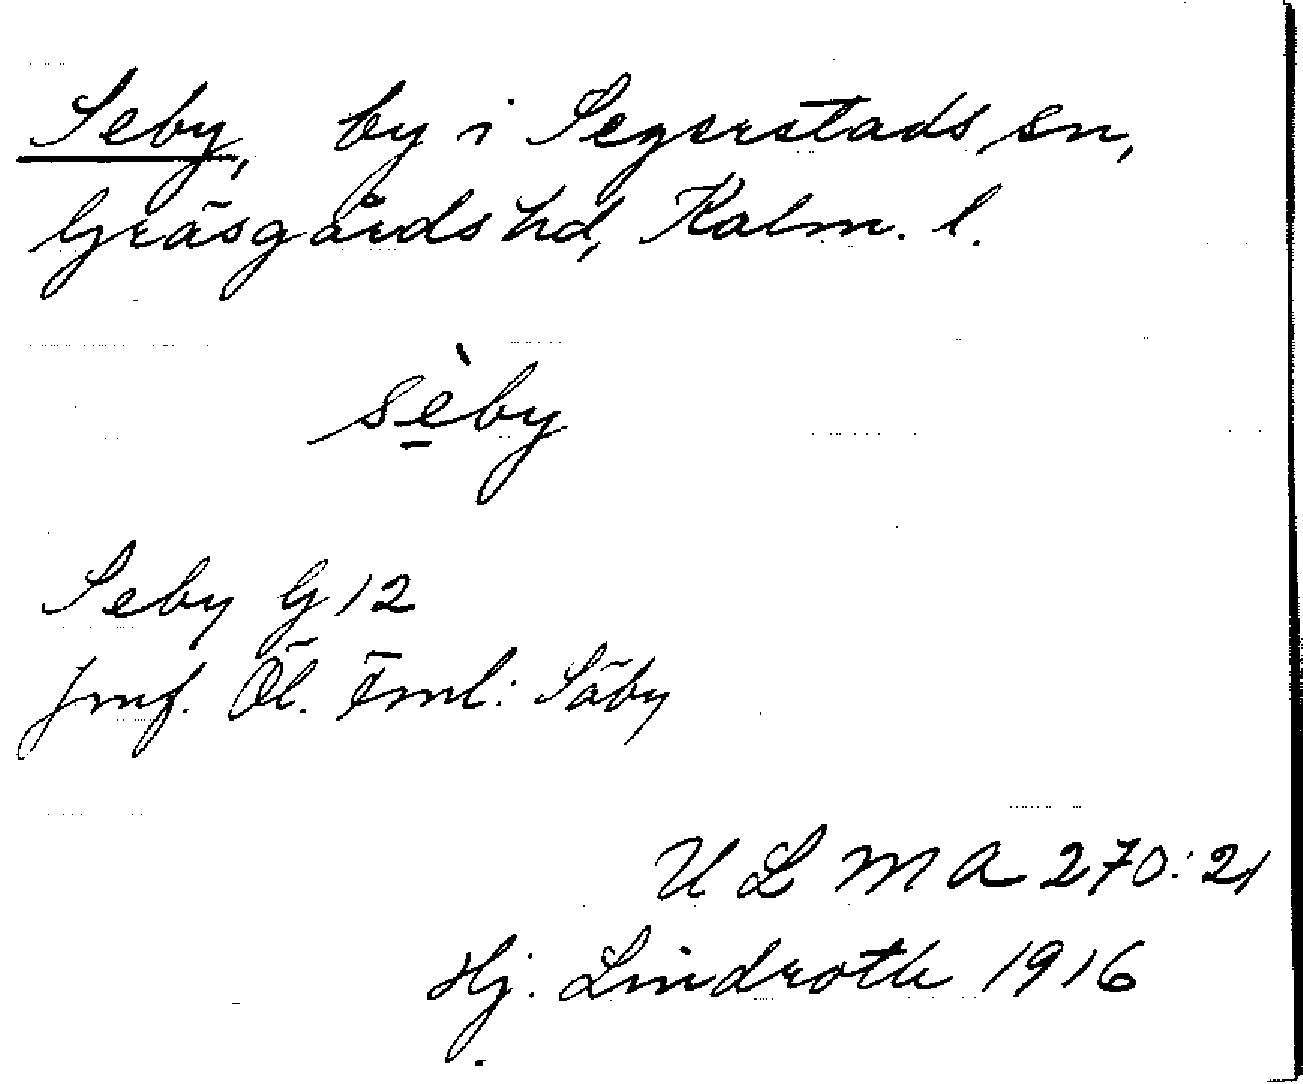 Seby, by i Segerstads sn,
Gräsgårds hd, Kalm. l.
sèby
Seby G 12
Jmf. Öl. Fml: Säby
ULMA 270:21
Hj. Lindroth 1916